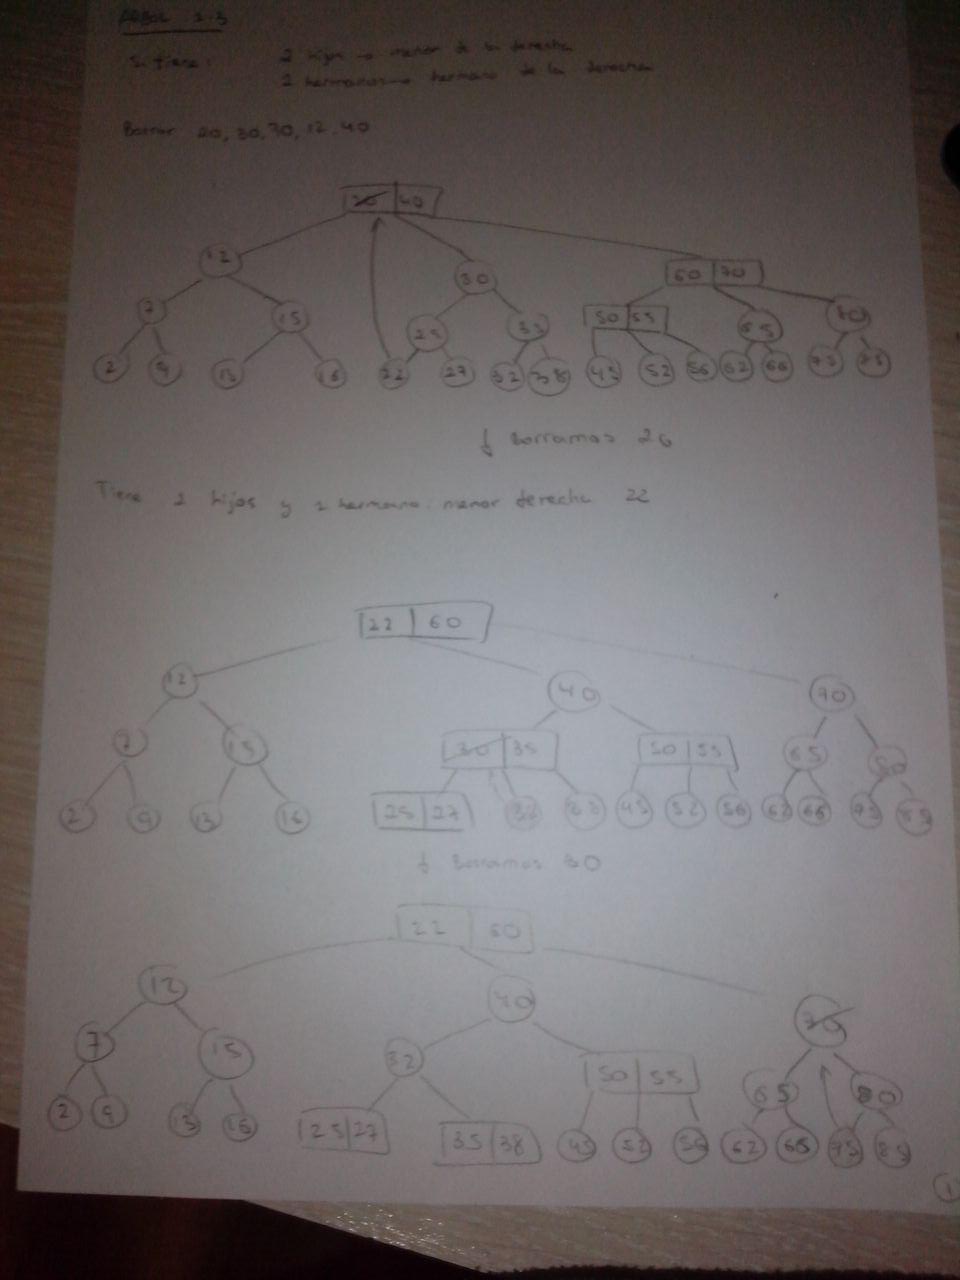 ARBOL 2-3
Si tiene: 2 hijos → menor de la derecha
2 hermanos → hermano de la derecha
Borrar 20, 30, 70, 12, 40
20 40
12 30 60 70
7 15 25 35 50 55 65 80
2 9 13 16 22 27 32 38 45 52 56 62 66 75 85
↓ Borramos 20
Tiene 2 hijos y 2 hermano: menor derecha 22
22 60
12 40 70
7 15 30 35 50 55 65 80
2 9 13 16 25 27 32 38 45 52 56 62 66 75 85
↓ Borramos 30
22 60
12 40 70
7 15 32 50 55 65 80
2 9 13 16 25 27 35 38 45 52 56 62 66 75 85
1